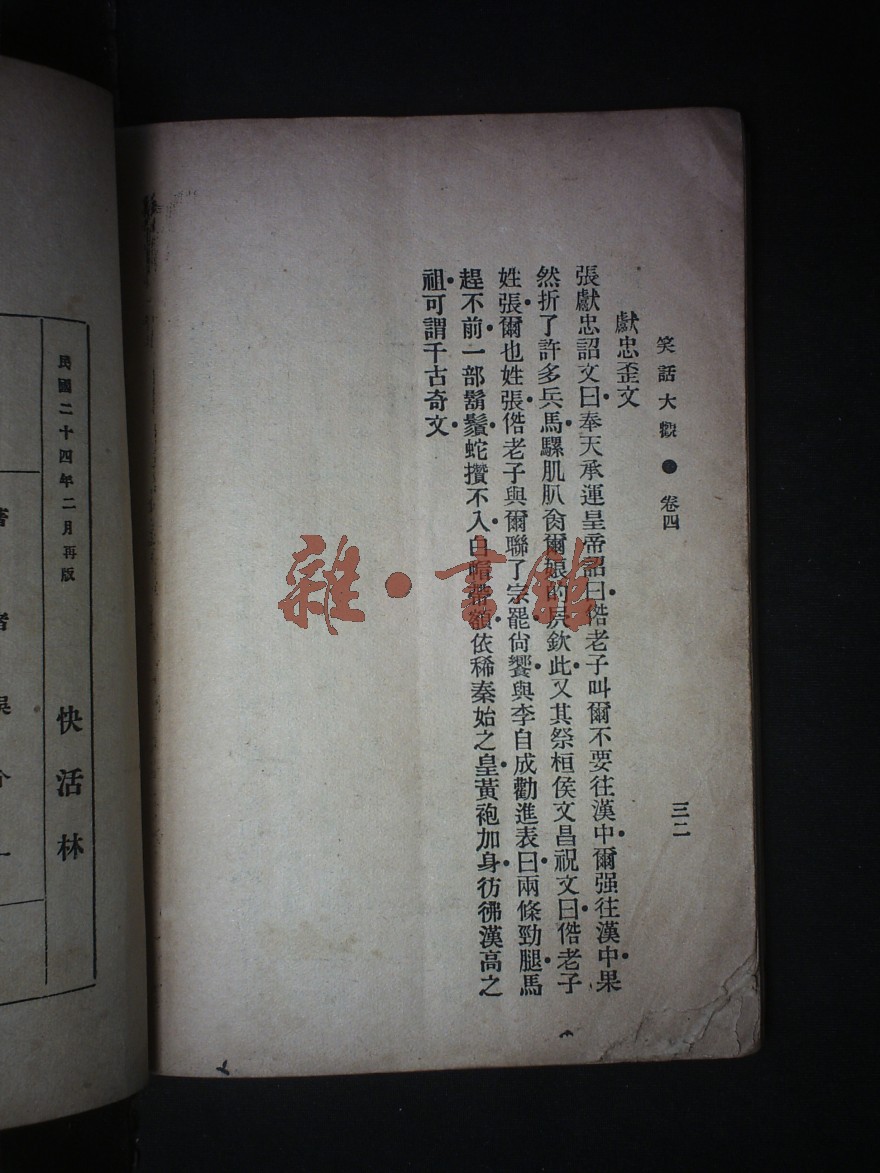 笑話大觀●卷四
三二
獻忠歪文
張獻忠詔文曰•奉天承運皇帝詔曰•偺老子叫爾不要往漢中•爾强往漢中•果
然折了許多兵馬•驟肌肌肏爾娘的屄欽此•又其祭桓侯文昌祝文曰•偺老子
姓張•爾也姓張•偺老子與爾聯了宗罷•尙饗•與李自成勸進表曰•兩條勁腿•馬
趕不前•一部鬍鬚•蛇攢不入•白帽帶額•依稀秦始之皇•黃袍加身•彷彿漢高之
祖•可謂千古奇文•
雜•書館
民國二十四年二月再版
快活林
著
者
吳
个
一